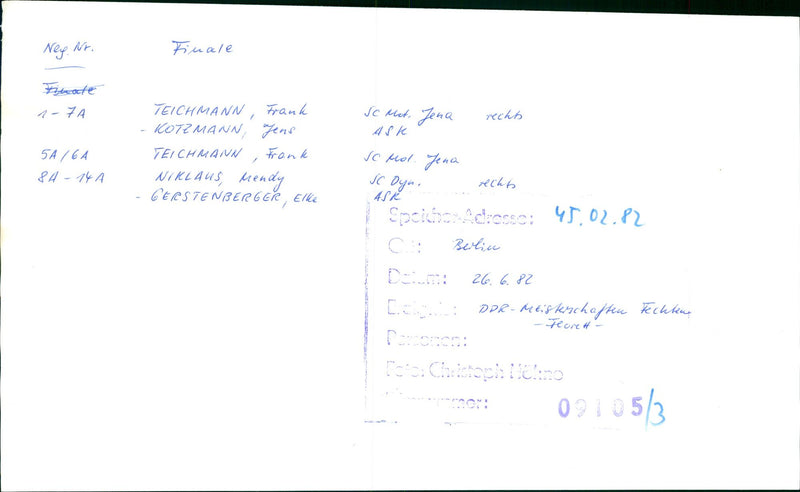 Neg. Nr. Finale
Finale
1 - 7A TEICHMANN, Frank SC Mot. Jena rechts
- KOTZMANN, Jens ASK
5A/6A TEICHMANN, Frank SC Mot. Jena
8A - 14A NIKLAUS, Mendy SC Dyn. rechts
- GERSTENBERGER, Elke ASK
Speicher-Adresse: 45.02.82
Ort: Berlin
Datum: 26.6.82
Ereignis: DDR-Meisterschaften Fechten
- Florett -
Personen:
Foto: Christoph Höhne
09105/3